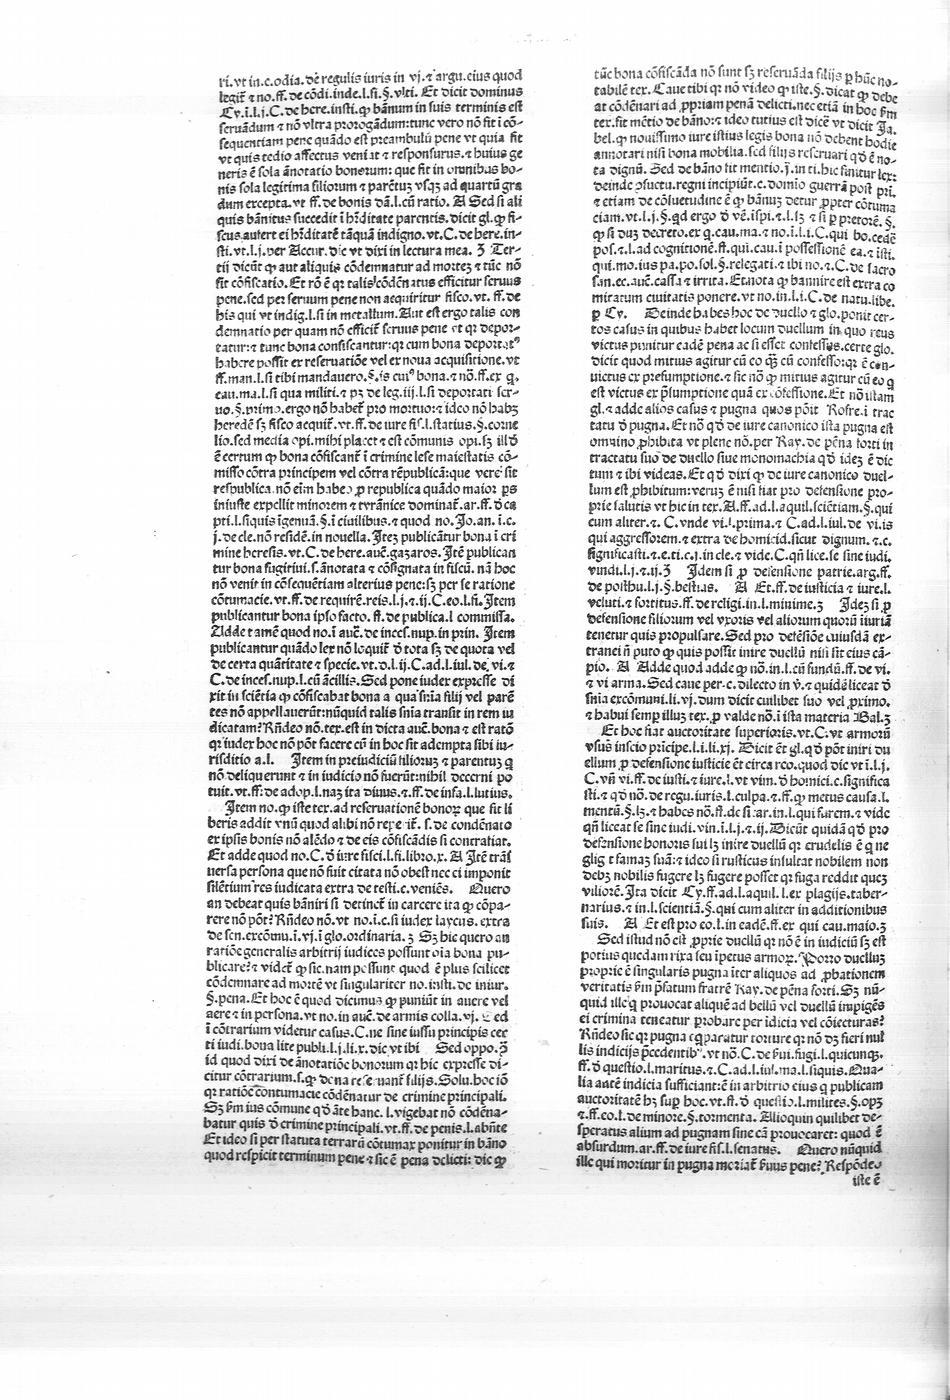 ri.vt in.c.odia.de regulis iuris in vj.⁊ argu.eius quod
legit̄ ⁊ no.ff.de cōdi.inde.l.si.§.vlti. Et dicit dominus
Cy.i.l.j.C.de here.insti.ꝙ bānum in suis terminis est
seruādum ⁊ nō vltra prorogādum:tunc vero nō fit i cō-
sequentiam pene quādo est preambulū pene vt quia fit
vt quis tedio affectus veniat ⁊ responsurus.⁊ huius ge
neris ē sola ānotatio bonorum: que fit in omnibus bo-
nis sola legitima filiorum ⁊ parētuꝫ vsqꝫ ad quartū gra
dum excepta.vt ff.de bonis dā.l.cū ratio. A Sed si ali
quis bānitus succedit i hr̄ditate parentis.dicit gl.ꝙ fi-
scus aufert ei hr̄ditatē tāquā indigno.vt.C.de here.in-
sti.vt.l.j.per Accur.dic vt dixi in lectura mea. ꝫ Ter-
tij dicūt ꝙ aut aliquis cōdemnatur ad morteꝫ ⁊ tūc nō
fit cōfiscatio. Et rō ē qꝛ talis cōdēnatus efficitur seruus
pene.sed per seruum pene non acquiritur fisco.vt.ff.de
his qui vt indig.l.si in metallum.Aut est ergo talis con
demnatio per quam nō efficit̄ seruus pene et qꝛ depor-
tatur:⁊ tunc bona confiscantur:qꝛ cum bona deportatꝰ
habere possit ex reseruatiōe vel ex noua acquisitione.vt
ff.man.l.si tibi mandauero.§.is cuiꝰ bona.⁊ nō.ff.ex q.
cau.ma.l.si qua militi.⁊ pꝫ de leg.iij.l.si deportati ser-
uo.§.primo.ergo nō habet̄ pro mortuo:⁊ ideo nō habꝫ
heredē sꝫ fisco acquirit̄.vt.ff.de iure fis.l.statius.§.corne
lio.sed media opi.mihi placet ⁊ est cōmunis opi.sꝫ illd̄
ē certum ꝙ bona cōfiscant̄ i crimine lese maiestatis cō-
misso cōtra principem vel cōtra rēpublicā:que vere sit
respublica.nō eim habeo ꝓ republica quādo maior ps
iniuste expellit minorem ⁊ tyrānice dominat̄.ar.ff.d̄ ca
pti.l.siquis īgenuā.§.i ciuilibus.⁊ quod no.Jo.an. i.c.
j.de cle.nō residē.in nouella. Iteꝫ publicātur bona i cri
mine heresis.vt.C.de here.auē.gazaros. Itē publican
tur bona fugitiui.s.ānotata ⁊ cōsignata in fiscū. nā hoc
nō venit in cōsequētiam alterius pene:sꝫ per se ratione
cōtumacie.vt.ff.de requirē.reis.l.j.⁊.ij.C.eo.l.fi. Item
publicantur bona ipso facto. ff.de publica.l commissa.
Adde tamē quod no.i auē.de inces.nup.in prin. Item
publicantur quādo lex nō loquit̄ d̄ tota sꝫ de quota vel
de certa quātitate ⁊ specie.vt.d.l.ij.C.ad.l.iul.de.vi.⁊
C.de inces.nup.l.cū ācillis.Sed pone iudex expresse di
xit in sciētia ꝙ cōfiscabat bona a qua snīa filij vel parē
tes nō appellauerūt:nūquid talis snīa transit in rem iu
dicatam?Rn̄deo nō.tex.est in dicta auē.bona ⁊ est ratō
qꝛ iudex hoc nō pōt facere cū in hoc sit adempta sibi iu-
risditio a.l. Item in preiudiciū filioruꝫ ⁊ parentuꝫ q
nō deliquerunt ⁊ in iudicio nō fuerūt:nihil decerni po
tuit.vt.ff.de adop.l.naꝫ ita diuus.⁊.ff.de insa.l.lutius.
Item no.ꝙ iste tex.ad reseruationē bonoꝝ que fit li
beris addit vnū quod alibi nō reperit̄. s.de condēnato
er ipsis bonis nō alēdo ⁊ de eis cōfiscādis si contrafiat.
Et adde quod no.C.d̄ iure fisci.l.fi.libro.x. A Itē trāl
uersa persona que nō fuit citata nō obest nec ei imponit
silētium res iudicata extra de testi.c.veniēs. Quero
an debeat quis bāniri si detinet̄ in carcere ita ꝙ cōpa-
rere nō pōt?Rn̄deo nō.vt no.i.c.si iudex laycus. extra
de sen.excōmu.i.vj.i glo.ordinaria. ꝫ Sꝫ hic quero an
ratiōe generalis arbitrij iudices possunt oīa bona pu-
blicare?⁊ videt̄ ꝙ sic.nam possunt quod ē plus scilicet
cōdemnare ad mortē vt singulariter no.insti.de iniur.
§.pena.Et hoc ē quod dicimus ꝙ puniūt in auere vel
aere ⁊ in persona.vt no.in auē.de armis colla.vj. Sed
i cōtrarium videtur casus.C.ne sine iussu principis cer
ti iudi.bona lite publi.l.j.li.x.dic vt ibi Sed oppo.ꝫ
id quod dixi de ānotatiōe bonorum qꝛ hic expresse di-
citur cōtrarium.s.ꝙ bona reseruant̄ filijs.Solu.hoc iō
qꝛ ratiōe contumacie cōdēnatur de crimine principali.
Sꝫ fm ius cōmune qd̄ āte hanc. l.vigebat nō cōdēna-
batur quis d̄ crimine principali.vt.ff.de penis.l.absēte
Et ideo si per statuta terrarū cōtumax ponitur in bāno
quod respicit terminum pene ⁊ sic ē pena delicti: dic ꝙ
tūc bona cōfiscāda nō sunt sꝫ reseruāda filijs ꝑ hūc no-
tabilē tex. Caue tibi qꝛ nō video ꝙ iste.§.dicat ꝙ debe
at cōdēnari ad ꝓpriam penā delicti.nec etiā in hoc fm
tex.fit mētio de bāno:⁊ ideo tutius est dicē vt dicit Ja.
bel.ꝙ nouissimo iure istius legis bona nō debent hodie
annotari nisi bona mobilia.sed filijs reseruari qd̄ ē no-
ta dignū. Sed de bāno fit mentio.j.in ti.hic finitur lex:
deinde ꝯsuetu.regni incipiūt.c.domio guerrā post pri.
⁊ etiam de cōsuetudine ē ꝙ bānuꝫ detur ꝓpter cōtuma
ciam.vt.l.j.§.qd ergo d̄ vē.ispi.⁊.l.sꝫ ⁊ si ꝑ pretorē. §.
ꝙ si duꝫ decreto.ex q.cau.ma.⁊ no.i.l.i.C.qui bo.cedē
pos.⁊.l.ad cognitionē.ff.qui.cau.i possessionē ea.⁊ isti.
qui.mo.ius pa.po.sol.§.relegati.⁊ ibi no.⁊.C.de sacro
san.ec.auē.cassa ⁊ irrita. Et nota ꝙ bannire est extra co
mitatum ciuitatis ponere.vt no.in.l.i.C.de natu.libe.
ꝑ Cy. Deinde habes hoc de duello ⁊ glo.ponit cer-
tos casus in quibus habet locum duellum in quo reus
victus punitur eadē pena ac si esset confessus.certe glo.
dicit quod mitius agitur cū eo qꝫ cū confesso:qꝛ ē con-
uictus ex presumptione.⁊ sic nō ꝙ mitius agitur cū eo q
est victus ex p̄sumptione quā ex cōfessione.Et nō istam
gl.⁊ adde alios casus ⁊ pugna quos pōit Rofre.i trac
tatu d̄ pugna.Et nō qd̄ de iure canonico ista pugna est
omnino ꝓhibita vt plene nō.per Ray.de pēna forti in
tractatu suo de duello siue monomachia qd̄ ideꝫ ē dic
tum ⁊ ibi videas.Et qd̄ dixi ꝙ de iure canonico duel-
lum est ꝓhibitum:veruꝫ ē nisi fiat pro defensione pro-
prie salutis vt hic in tex.A.ff.ad.l.aquil.sciētiam.§.qui
cum aliter.⁊.C.vnde vi.l.prima.⁊ C.ad.l.iul.de vi.is
qui aggressorem.⁊ extra de homicid.sicut dignum. ⁊.c.
significasti.⁊.e.ti.c.j.in cle.⁊ vide.C.qn̄ lice.se sine iudi.
vindi.l.j.⁊.ij.ꝫ Idem si ꝑ defensione patrie.arg.ff.
de postbu.l.j.§.bestias. A Et.ff.de iusticia ⁊ iure.l.
veluti.⁊ fortitus.ff.de religi.in.l.minime.ꝫ Ideꝫ si ꝑ
defensione filiorum vel vxoris vel aliorum quorū iiuriā
tenetur quis propulsare.Sed pro defēsiōe cuiusdā ex-
tranei n̄ puto ꝙ quis possit inire duellū nisi sit eius cā-
pio. A Adde quod adde ꝙ nō.in.l.cū fundū.ff.de vi.
⁊ vi arma.Sed caue per.c.dilecto in v̄.⁊ quidē liceat d̄
snīa excōmuni.li.vj.dum dicit cuilibet suo vel ꝓximo.
⁊ habui semꝑ illuꝫ tex.ꝑ valde nō.i ista materia Bal.ꝫ
Et hoc fiat auctoritate superioris.vt.C.vt armorū
vsus inscio pricipe.l.i.li.xj. Dicit ēt gl.qd̄ pōt iniri du
ellum ꝓ defensione iusticie ēt circa reo.quod dic vt i.l.j.
C.vn̄ vi.ff.de iusti.⁊ iure.l.vt vim.d̄ homici.c.significa
sti.⁊ qd̄ nō.de regu.iuris.l.culpa.⁊.ff.ꝙ metus causa.l.
mentū.§.lꝫ.⁊ habes nō.ff.de sicar.in.l.qui furem.⁊ vide
qn̄ liceat se sine iudi.vin.i.l.j.⁊.ij.Dicūt quidā qd̄ pro
defensione honoris sui lꝫ inire duellū qꝛ crudelis ē q ne
glig t famaꝫ suā:⁊ ideo si rusticus insultat nobilem non
debꝫ nobilis fugere lꝫ fugere posset qꝛ fuga reddit queꝫ
viliorē.Ita dicit Cy.ff.ad.l.aquil.l.ex plagijs.taber-
narius.⁊ in.l.scientiā.§.qui cum aliter in additionibus
suis. A Et est pro eo.l.in eadē.ff.ex qui cau.maio.ꝫ
Sed istud nō est ꝓprie duellū qꝛ nō ē in iudiciū sꝫ est
potius quedam rixa seu īpetus armoꝝ. Porro duelluꝫ
proprie ē singularis pugna iter aliquos ad ꝓbationem
veritatis fm p̄fatum fratrē Ray.de pēna forti. Sꝫ nū-
quid ille q prouocat aliquē ad bellū vel duellū impigēs
ei crimina teneatur ꝓbare per īdicia vel cōiecturas?
Rn̄deo sic qꝛ pugna equiparatur torture qꝛ nō dꝫ fieri nul
lis indicijs p̄cedentibꝰ.vt nō.C.de fui.fugi.l.quicunqꝫ.
ff.d̄ questio.l.maritus.⁊.C.ad.l.iul.ma.l.siquis.Qua-
lia autē indicia sufficiant:ē in arbitrio eius q publicam
auctoritatē hꝫ suꝑ hoc.vt.ff.d̄ questio.l.milites.§.opꝫ
⁊.ff.eo.l.de minore.§.tormenta. Alioquin quilibet de-
speratus alium ad pugnam sine cā prouocaret: quod ē
absurdum.ar.ff.de iure fis.l.senatus. Quero nūquid
ille qui moritur in pugna moriat̄ suus pene? Respōdeo
iste ē